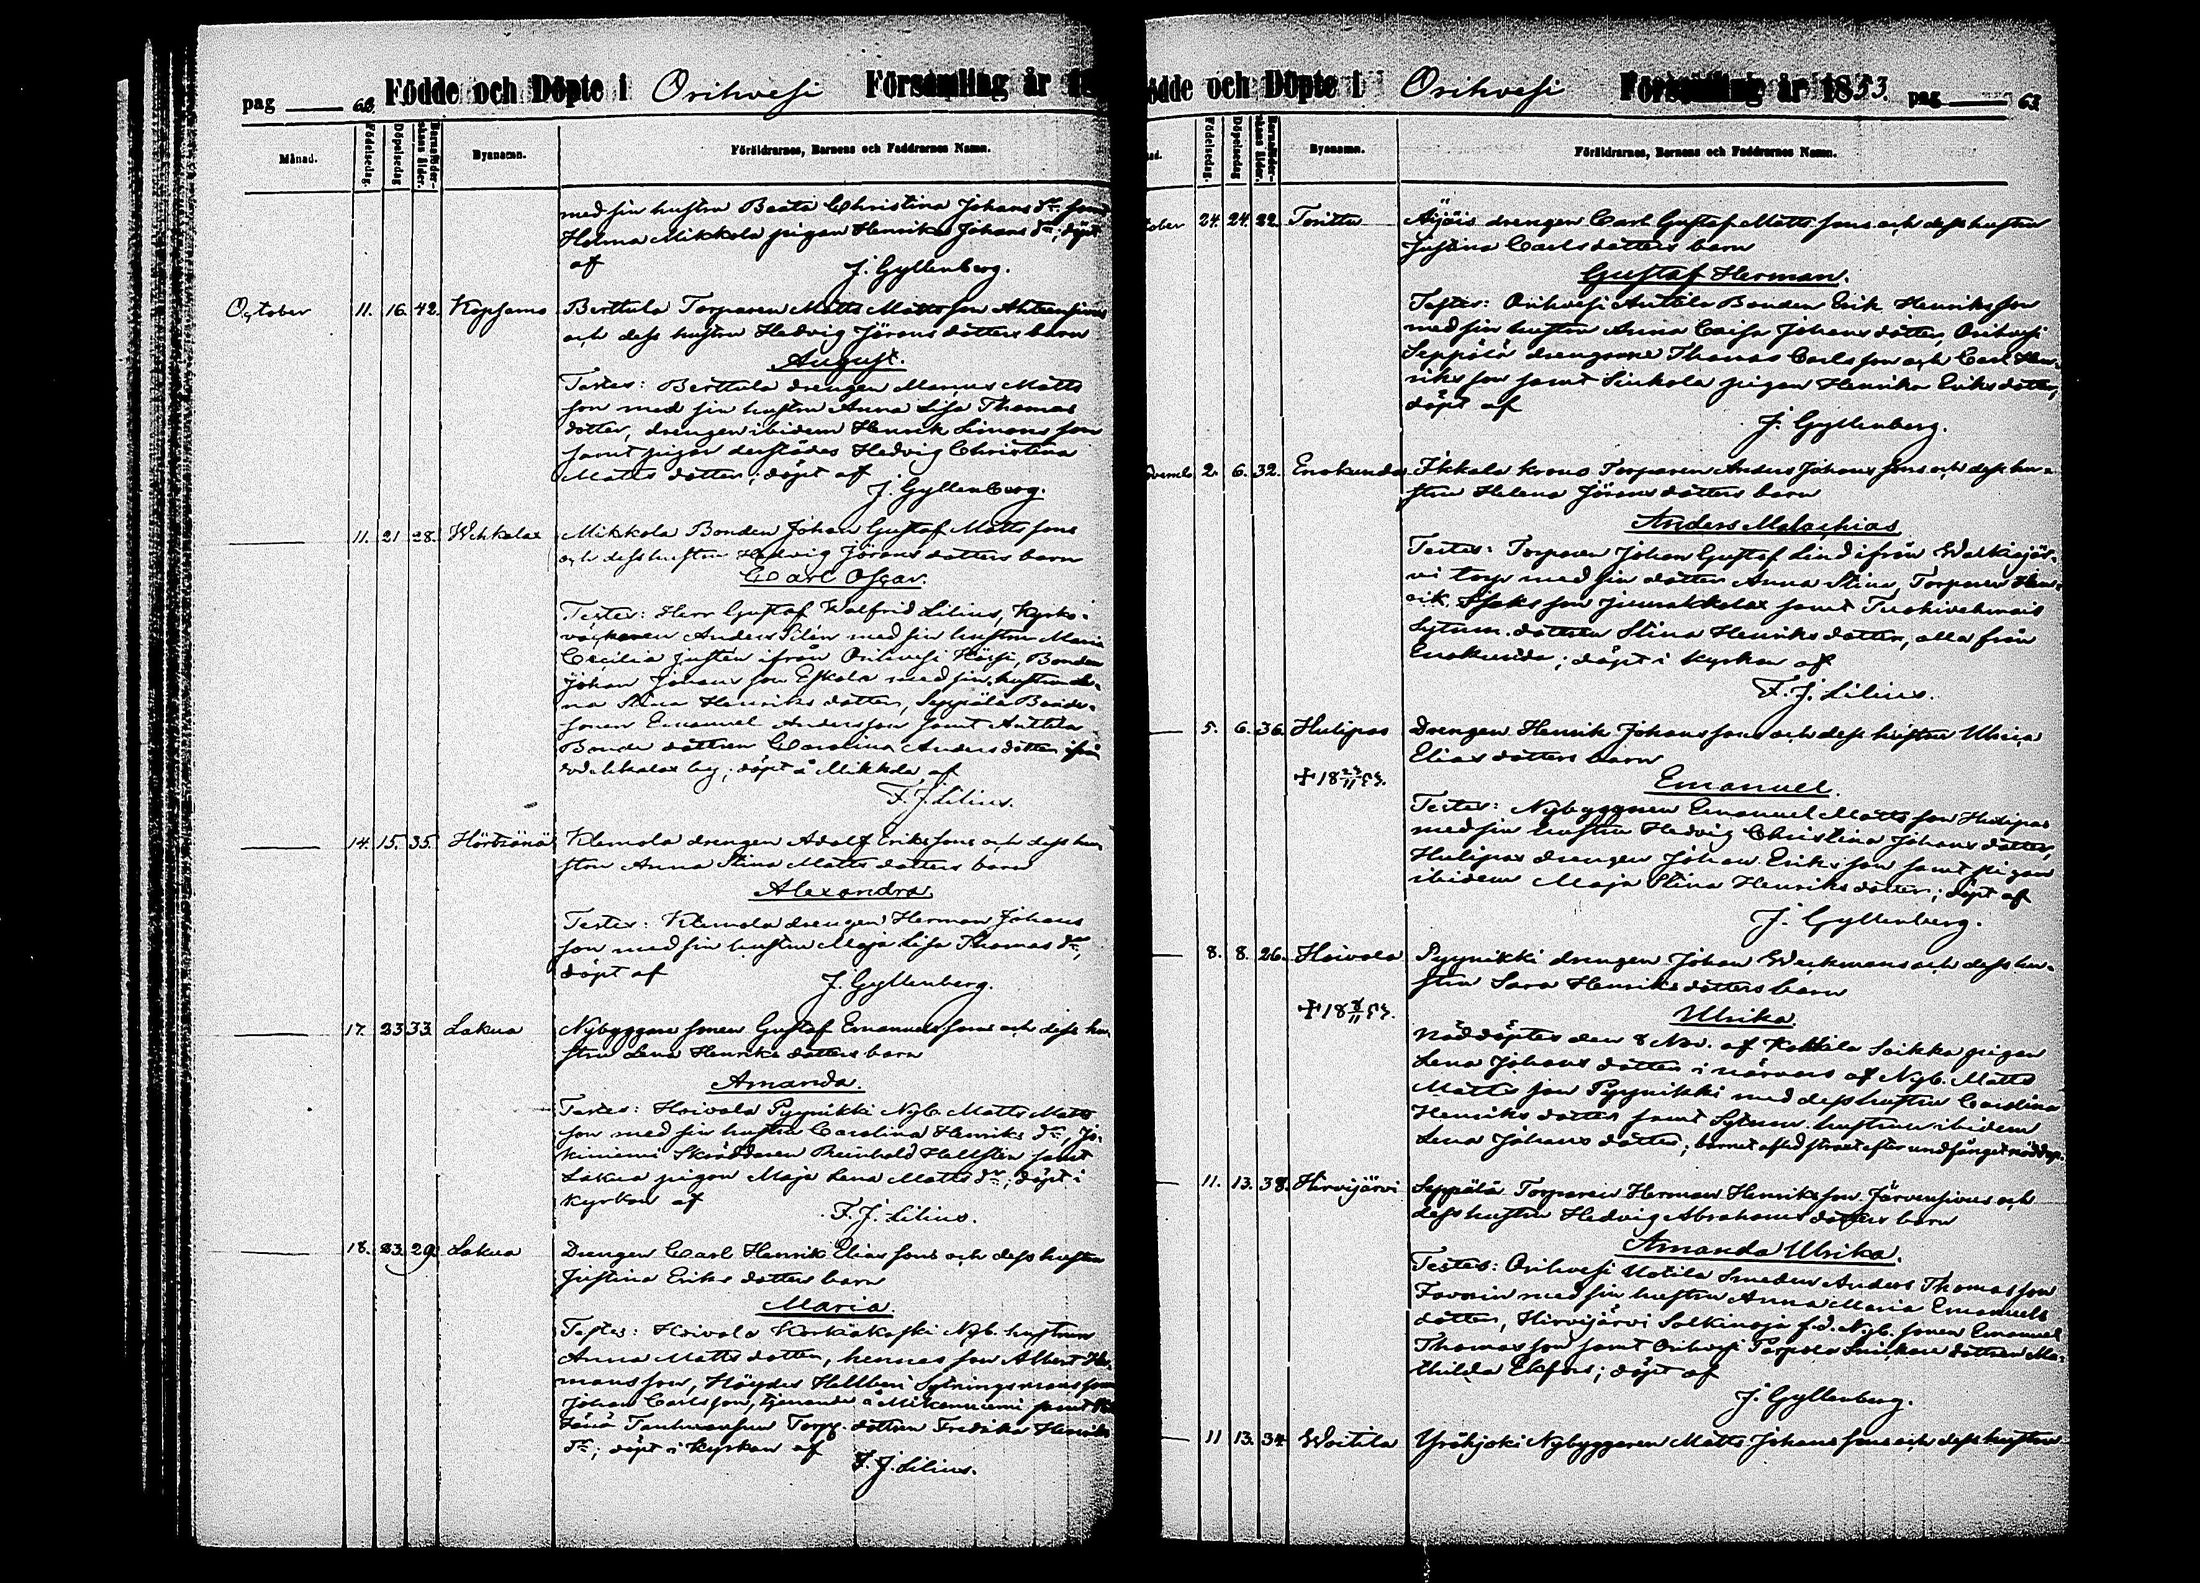 pag 62. Födde och Döpte i Orihvesi Församling år 18
Månad. Födelsedag. Döpelsedag Barnaföder-skans ålder. Bynamn. Föräldrarnes, Barnens och Faddrarnes Namn.
med sin hustru Beata Christina Johans dr samt
Holma Mikkola pigan Henrika Johans dr; döpt
af J. Gyllenberg.
October 11. 16. 42. Kopsamo Berttula Torparen Matts Mattsson Ahtensivus
och dess hustru Hedvig Jörans dotters barn
August.
Testes: Berttula drengen Magnus Matts
son med sin hustru Anna Lisa Thomas
dotter, drengen ibidem Henrik Simons son
samt pigan derstädes Hedvig Christina
Matts dotter; döpt af
J. Gyllenberg.
11. 21 28. Wehkalax Mikkola Bonden Johan Gustaf Matts sons
och dess hustru Hedvig Jörans dotters barn
Carl Oscar.
Testes: Herr Gustaf Walfrid Lilius, Kyrko-
väktaren Anders Silén med sin hustru Maria
Cecilia Justén ifrån Orihvesi Hörsi, Bonden
Johan Johans son Eskola med sin hustru An-
na Stina Henriks dotter, Seppälä Bonde-
sonen Emanuel Andersson samt Anttila
Bonde dottren Carolina Anders dotter ifrån
Wehkalax by; döpt å Mikkola af
F. J. Lilius.
14. 15. 35. Hörtsänä Klemola drengen Adolf Eriks sons och dess hu-
stru Anna Stina Matts dotters barn
Alexandra.
Testes: Klemola drengen Herman Johans
son med sin hustru Maja Lisa Thomas dr;
döpt af J. Gyllenberg.
17. 23 33. Lakua Nybyggare sonen Gustaf Emanuels sons och dess hu-
stru Lena Henriks dotters barn
Amanda.
Testes: Hoivala Pyynikki Nyb. Matts Matts
son med sin hustru Carolina Henriks dr, Jo-
kiniemi Skräddaren Reinhold Hellsten samt
Lakua pigan Maja Lena Matts dr; döpt i
kyrkan af F. J. Lilius.
18. 23. 29. Lakua Drengen Carl Henrik Elias sons och dess hustru
Justina Eriks dotters barn
Maria.
Testes: Hoivala Korkiakoski Nyb. hustrun
Anna Matts dotter, hennes son Albert Her-
mansson, Sytningsmans son
Johan Carlsson, tjenande å Mikonniemi samt
Torp. dottren Fredrika Henriks
dr; döpt i kyrkan af
F. J. Lilius.
Födde och Döpte i Orihvesi Församling år 1853. pag 63.
Födelsedag. Döpelsedag Barnaföder-skans ålder. Bynamn. Föräldrarnes, Barnens och Faddrarnes Namn.
tober 24. 24. 22. Toritta Äijäis drengen Carl Gustaf Matts sons och dess hustru
Justina Carls dotters barn
Gustaf Herman.
Testes: Orihvesi Anttila Bonden Erik Henriksson
med sin hustru Anna Caisa Johans dotter, Orihvesi
Seppälä drengarne Thomas Carlsson och Carl Hen-
riks son samt Sinkola pigan Henrika Eriks dotter;
döpt af J. Gyllenberg.
ovemb. 2. 6. 32. Enokunda Ikkala krono Torparen Anders Johans sons och dess hu-
stru Helena Jörans dotters barn
Anders Malachias.
Testes: Torparen Johan Gustaf Lind ifrån Walkiajär-
vi torp med sin dotter Anna Stina, Torparen Hen-
rik Isaks son samt
Sytnm. dottren Stina Henriks dotter, alla från
Enokunda; döpt i kyrkan af
F. J. Lilius.
5. 6. 36. Hulipas Drengen Henrik Johans sons och dess hustru Ulrica
Elias dotters barn
✝ 18 23/11 53.
Emanuel.
Testes: Nybyggaren Emanuel Matts son Hulipas
med sin hustru Hedvig Christina Johans dotter,
Hulipas drengen Johan Eriks son samt pigan
ibidem Maja Stina Henriks dotter; döpt af
J. Gyllenberg.
8. 8. 26. Hoivala Pyynikki drengen Johan Weckmans och dess hu-
stru Sara Henriks dotters barn
✝ 18 8/11 53.
Ulrika.
Nöddöptes den 8 Nov. af Kokkila Soikka pigan
Lena Johans dotter i närvaro af Nyb. Matts
Matts son Pyynikki med dess hustru Carolina
Henriks dotter samt Sytnm. hustrun ibidem
Lena Johans dotter; barnet afled straxt efter undfånget nöddop.
11. 13. 38. Hirvijärvi Seppälä Torparen Herman Henriksson Järvensivus och
dess hustru Hedvig Abrahams dotters barn
Amanda Ulrika.
Testes: Orihvesi Uotila Smeden Anders Thomasson
Favorin med sin hustru Anna Maria Emanuels
dotter, Hirvijärvi Salkinoja f.d. Nyb. sonen Emanuel
Thomasson samt Orihvesi Torpola Snickare dottren Ma-
thilda Elefors; döpt af
J. Gyllenberg.
11 13. 34 Woitila Yröhjoki Nybyggaren Matts Johans sons och dess hustru